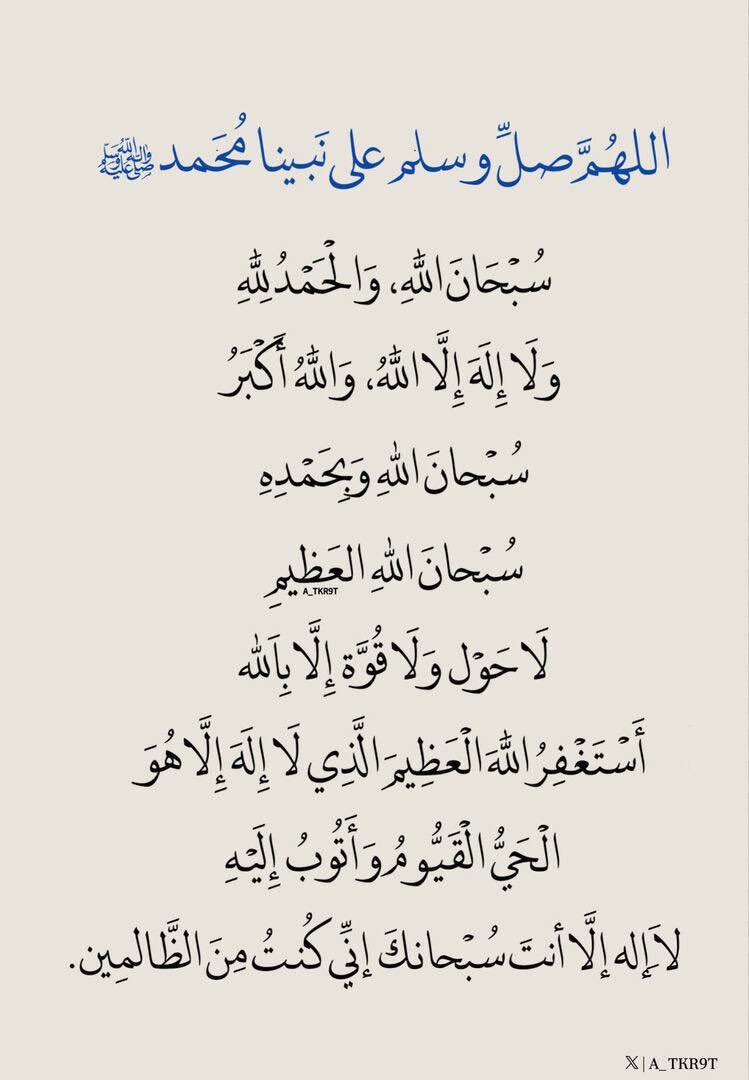 اللهُمَّ صلِّ وسلم على نَبينا مُحَمد ﷺ
سُبْحَانَ اللَّهِ، وَالْحَمْدُ لِلَّهِ
وَلَا إِلَهَ إِلَّا اللَّهُ، وَاللَّهُ أَكْبَرُ
سُبْحانَ اللهِ وَبِحَمْدِهِ
سُبْحانَ اللهِ العَظِيمِ
A_TKR9T
لَا حَوْل وَلَا قُوَّة إِلَّا بِاَللَّه
أَسْتَغْفِرُ اللَّهَ الْعَظِيمَ الَّذِي لَا إِلَهَ إِلَّا هُوَ
الْحَيُّ الْقَيُّومُ وَأَتُوبُ إِلَيْهِ
لاَ إِله إلَّا أنتَ سُبْحانكَ إنِّي كُنتُ مِنَ الظَّالمِين.
𝕏 | A_TKR9T